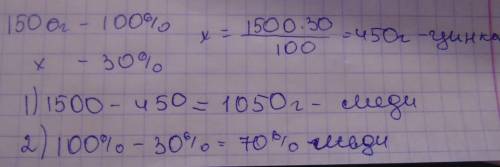 1500г - 100%
x = 1500·30 / 100 = 450г - цинка
x - 30%
1) 1500 - 450 = 1050г - меди
2) 100% - 30% = 70% меди